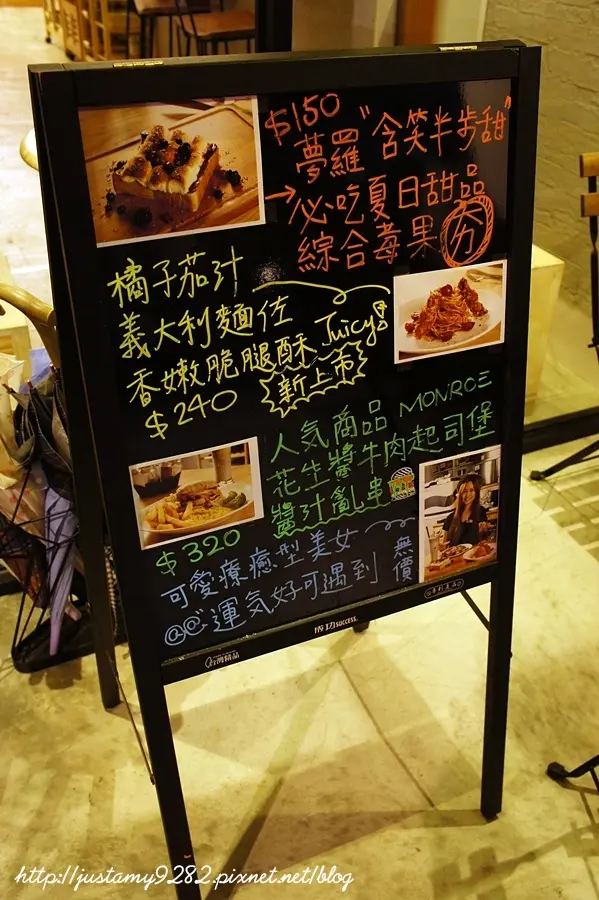 $150
夢羅"含笑半步甜"
→必吃夏日甜品
綜合莓果夯
橘子茄汁
義大利麵佐
香嫩脆腿酥 Juicy!
$240 新上市
人気商品 MONROE
花生醬牛肉起司堡
醬汁亂串
$320
可愛療癒型美女
@@"運気好可遇到 無價
成功success
台灣精品
http://justamy9282.pixnet.net/blog